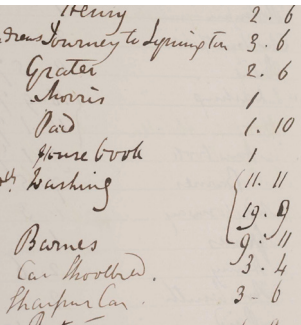 Henry 2.6
Journey to Lymington 3.6
Grater 2.6
Morris 1
Paid 1.10
House book 1
Washing 11.11
19.9
9.11
Barnes 3.4
Car Shoolbred.
Sharpur Car. 3-6